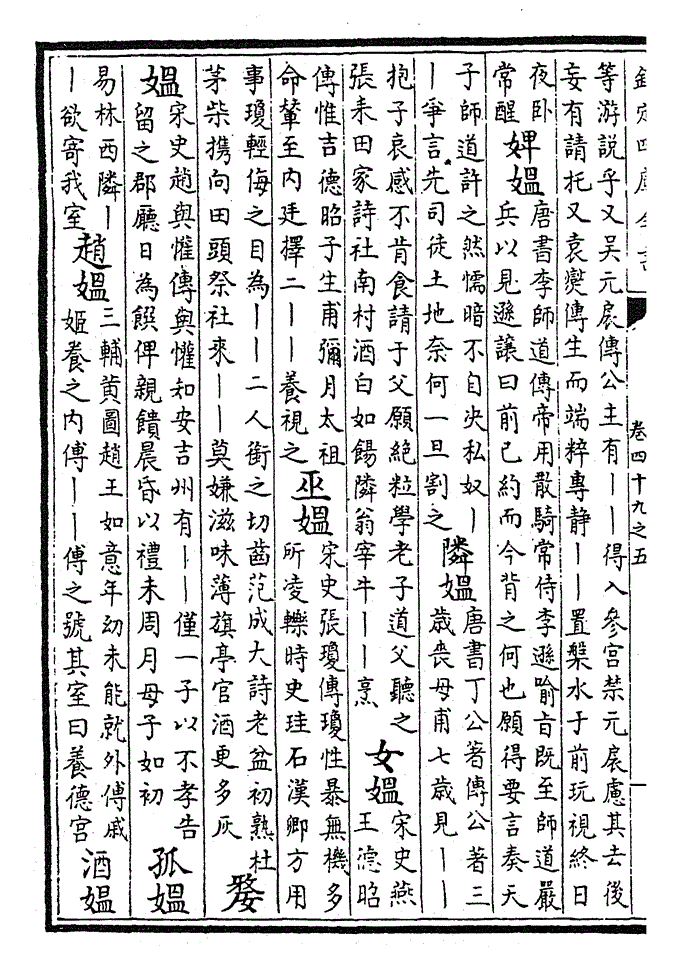 欽定四庫全書
卷四十九之五
等游説乎又吳元扆傳公主有——得入參宫禁元扆慮其去後
妄有請托又袁㷫傳生而端粹專静——置槃水于前玩視終日
夜卧
常醒
婢媪
唐書李師道傳帝用散騎常侍李遜喻旨既至師道嚴
兵以見遜讓曰前已約而今背之何也願得要言奏天
子師道許之然懦暗不自决私奴—
—爭言先司徒土地奈何一旦割之
隣媪
唐書丁公著傳公著三
歲喪母甫七歲見——
抱子哀感不肯食請于父願絶粒學老子道父聽之
張耒田家詩社南村酒白如餳隣翁宰牛——烹
女媪
宋史燕
王德昭
傳惟吉德昭子生甫彌月太祖
命輦至内廷擇二——養視之
巫媪
宋史張瓊傳瓊性暴無機多
所凌轢時史珪石漢卿方用
事瓊輕侮之目為——二人銜之切齒范成大詩老盆初熟杜
茅柴攜向田頭祭社來——莫嫌滋味薄旗亭官酒更多灰
嫠
媪
宋史趙與懽傳與懽知安吉州有——僅一子以不孝告
留之郡廳日為饌俾親饋晨昏以禮未周月母子如初
孤媪
易林西隣—
—欲寄我室
趙媪
三輔黄圖趙王如意年幼未能就外傅戚
姬養之内傅——傅之號其室曰養德宫
酒媪